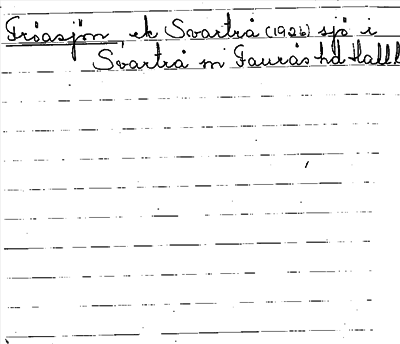 Tröasjön, ek Svartrå (1926) sjö i
Svartrå sn Faurås hd Hall